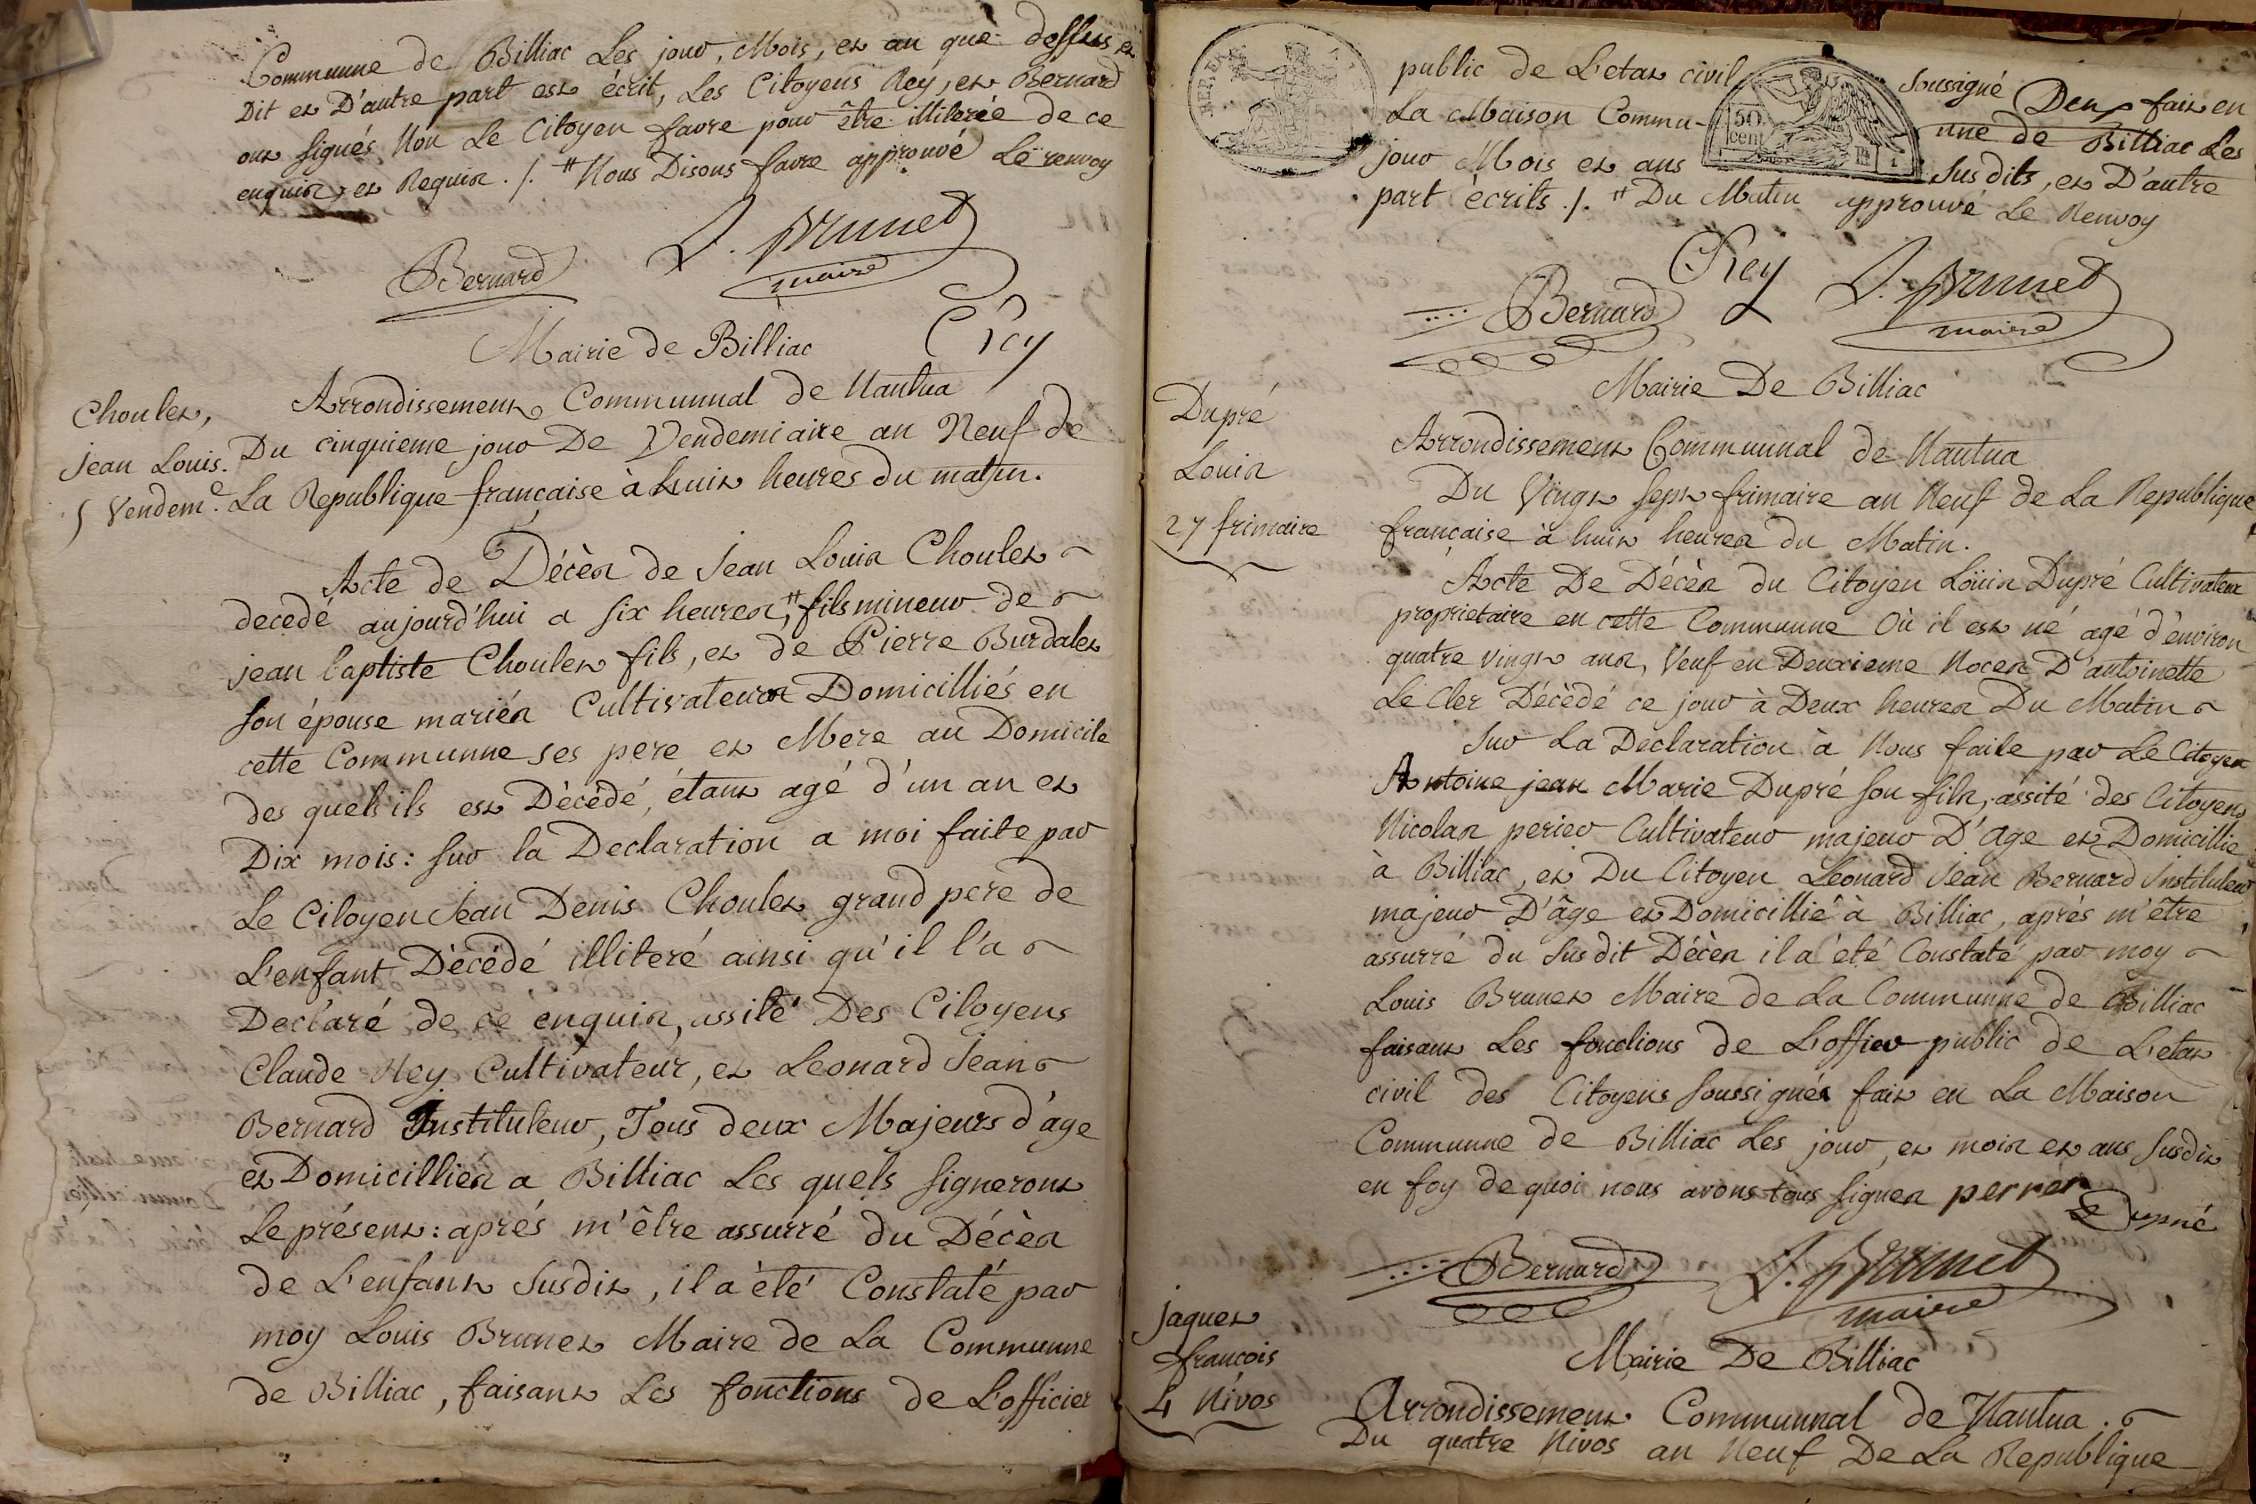 Communne de Billiac Les jour, Mois, et an que dessus est
Dit et D'autre part est écrit, Les Citoyens Rey, et Bernard
ont signés Non Le Citoyen favre pour être illiterée de ce
enquis, et Requis ./. # Nous Disons favre approuvé Le renvoy
Bernard
L. Brunet
maire
Rey
Mairie de Billiac
Arrondissement Communnal de Nantua
Choulet,
jean Louis.
5 Vendem.e
Du cinquieme jour De Vendemiaire an Neuf de
La Republique française à huit heures du matin.
Acte de Décès de Jean Louis Choulet
decedé aujourd'hui a six heures, # fils mineur de
jean baptiste Choulet fils, et de Pierre Burdalet
son épouse mariés Cultivateurs Domicilliés en
cette Communne ses pere et Mere au Domicile
des quels ils est Décédé, étant agé d'un an et
Dix mois: sur la Declaration a moi faite par
Le Citoyen Jean Denis Choulet grand pere de
L'enfant Décédé illiteré ainsi qu'il l'a
Declaré de ce enquis, assité Des Citoyens
Claude Rey Cultivateur, et Leonard Jean
Bernard Instituteur, Tous deux Majeurs d'age
et Domicilliés a Billiac Les quels signeront
Le présent: aprés m'être assurré du Décès
de L'enfant susdit, il a été Constaté par
moy Louis Brunet Maire de La Communne
de Billiac, faisant Les fonctions de L'officier
public de L'etat civil soussigné Deux fait en
La Maison Commu-nne de Billiac Les
jour Mois et ans susdits, et D'autre
part écrits ./. # Du Matin approuvé Le Renvoy
50
cent
1
Bernard
Rey
L. Brunet
maire
Mairie De Billiac
Dupré
Louis
27 frimaire
Arrondissement Communnal de Nantua
Du Vingt sept frimaire an Neuf de La Republique
française à huit heures du Matin.
Acte De Décès du Citoyen Loüis Dupré Cultivateur
proprietaire en cette Communne Où il est né agé d'environ
quatre vingt ans, Veuf en Deuxieme Noces D'antoinette
Le Cler Décèdé ce jour à Deux heures Du Matin
Sur La Declaration à Nous faite par Le Citoyen
Antoine jean Marie Dupré son fils, assité des Citoyens
Nicolas perier Cultivateur majeur D'age et Domicillié
à Billiac, et Du Citoyen Leonard Jean Bernard Instituteur
majeur D'âge et Domicillié à Billiac, aprés m'être
assurré du susdit Décès il a été Constaté par moy
Louis Brunet Maire de La Communne de Billiac
faisant Les fonctions de L'offier public de L'etat
civil des Citoyens soussignés fait en La Maison
Communne de Billiac Les jour, et mois et ans susdit
en foy de quoi nous avons tous signes perrier
Dupré
Bernard
L. Brunet
maire
jaquet
françois
4 Nivos
Mairie De Billiac
Arrondissement Communnal de Nantua.
Du quatre Nivos an Neuf De La Republique